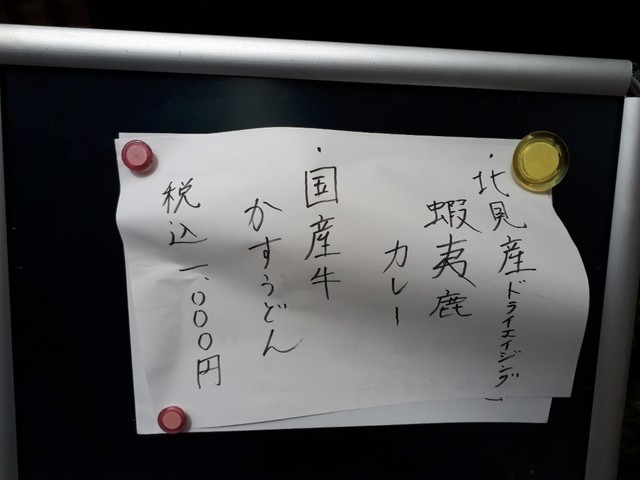 ・北見産ドライエイジング
蝦夷鹿
カレー
・国産牛
かすうどん
税込一、000円